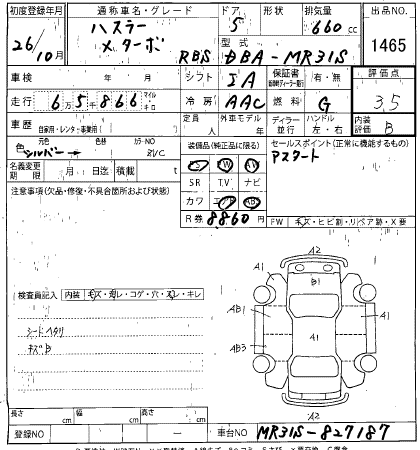 初度登録年月 通称車名・グレード ドア 形状 排気量 出品NO.
26 10月 ハスラー 5 660 cc 1465
X ターボ RBS 型式 DBA-MR31S
車検 年 月 シフト IA 保証書 有・無 評価点
走行 6万5千866 マイル キロ 冷房 AAC 燃料 G 3.5
車歴 自家用・レンタ・事業用( ) 定員 人 外車モデル 年 ディーラー 並行 ハンドル 左・右 内装評価 B
色 シルバー 色替 カラーNO 装備品(純正品に限る) セールスポイント(正常に機能するもの)
PS PW AW アスタート
名義変更期限 月 日迄 積載 t SR T.V ナビ
注意事項(欠品・修復・不具合箇所および状態) カワ エアB ABS
R券 8860 FW キズ・ヒビ割・リペア跡・X要
A2
A1 B1
検査員記入 内装 キズ・汚レ・コゲ・穴・スレ・キレ
AB1 A1 A1
シートヘタリ
キズB AB3
長さ cm 幅 cm 高さ cm A2
登録NO ― 車台NO MR31S-827187